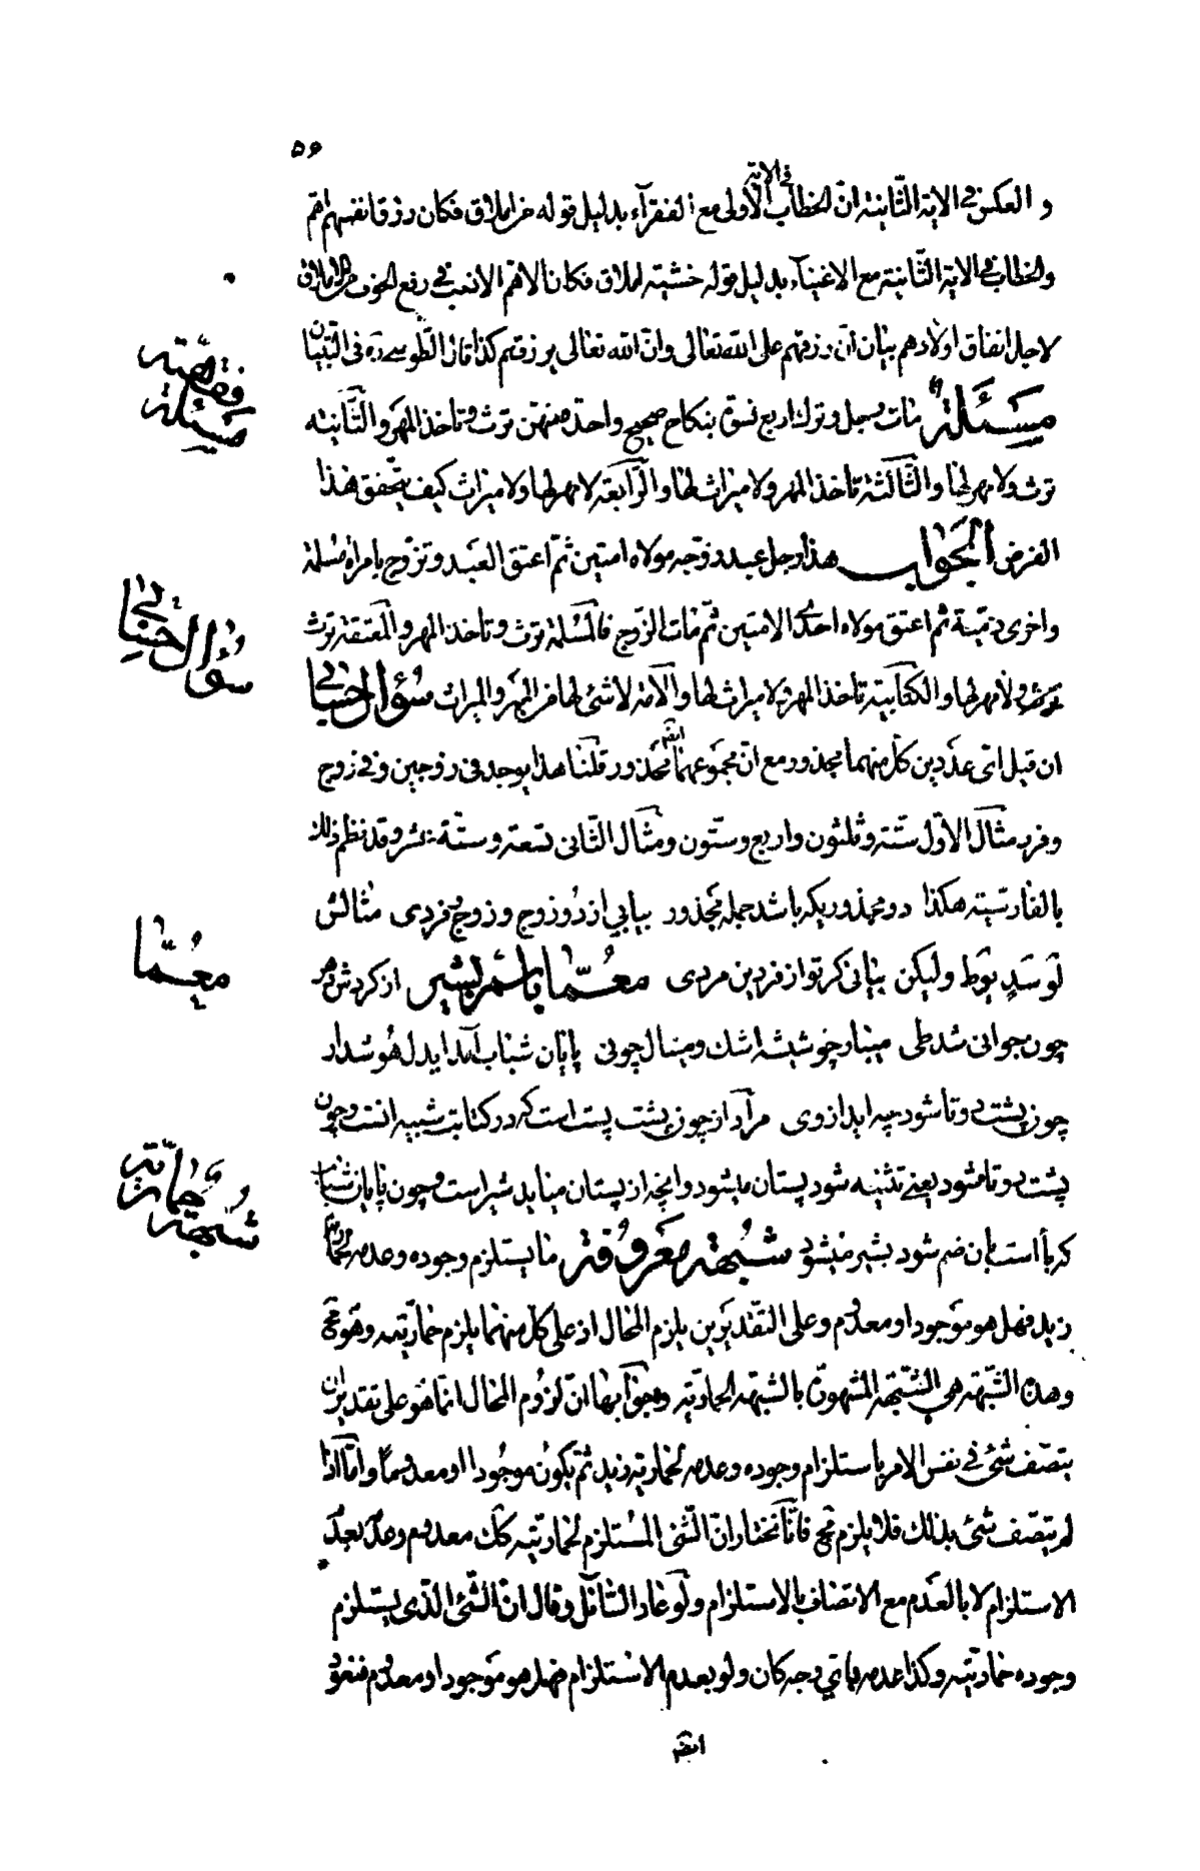 ٥٦
و العكس فى الاية الثّانية انّ الخطاب فى الاية الاولى مع الفقرآء بدليل قوله من املاق فكان رزق انفسهم اهمّ
والخطاب فى الاية الثّانية مع الاغنيآء بدليل قوله خشية املاق فكان الاهمّ الانعب فى رفع الخوف من الاملاق
لاجل انفاق اولادهم بيان انّ رزقهم على الله تعالى وانّ الله تعالى يرزقهم كذا قال الطّوسى ره فى التّبيان
مسئلة مات رجل وترك اربع نسوة بنكاح صحيح واحدة منهنّ ترث وتأخذ المهر والثّانية
فقهيّة مسئلة
ترث ولا مهر لها والثّالثة تأخذ المهر ولا ميراث لها والرّابعة لا مهر لها ولا ميراث كيف يتحقق هذا
الفرض الجواب هذا رجل عبد زوّجه مولاه امتين ثمّ اعتق العبد وتزوّج بامراة مسلمة
واخرى ذمّيّة ثم اعتق مولاه احدى الامتين ثمّ مات الزّوج فالمسلمة ترث وتاخذ المهر والمعتقة ترث
سؤال حسابى
ولا مهر لها والكتابيّة تاخذ المهر ولا ميراث لها والامة لا شئ لها من المهر والميراث سؤال حسابى
ان قيل اىّ عددين كلّ منهما مجذور مع انّ مجموعهما ايضا مجذور قلنا هذا يوجد فى زوجين وفى زوج
وفرد مثال الاوّل ستّة وثلثون واربع وستّون ومثال الثّانى تسعة وستّة عشر وقد نظم ذلك
بالفارسيّة هكذا دو مجذوريكه باشد جمله مجذور بيابى از دو زوج وزوج وفردى مثالش
لو سد يوط وليكن بيانى كر تو از فردين مردى معمّا باسم بشير از كردش دهر
معمّا
چون جوانى شد طى مينار خوشيشه اشك ومينال چونى پايان شباب آمد ايدل هوشدار
چون پشت دوتا شود چه ايد از وى مراد از چون پشت پست است كه در كتابت شبيه انست وچون
پشت دوتا شود يعنى تثنيه شود پستان ميشود وانچه از پستان ميايد شير است وچون پايان شباب
شبهة حماريّة
كه با است بان ضم شود بشير ميشود شبهة معروفة ما يستلزم وجوده وعدمه حماريّة
زيد فهل هو موجود او معدوم وعلى التّقديرين يلزم المحال اذ على كل منهما يلزم حماريّته وهو مح
وهذه الشّبهة هى الشّبهة المشهورة بالشبهة الحماريّة وجوابها انّ لزوم المحال انّما هو على تقدير ان
يتّصف شئ فى نفس الامر باستلزام وجوده وعدمه لحماريّة زيد ثم يكون موجودا او معدوما وامّا اذا
لم يتّصف شئ بذلك فلا يلزم مح فانّا نختار انّ الشّئ المستلزم لحماريّته كك معدوم وعدمه بعدم
الاستلزام لا بالعدم مع الاتّصاف بالاستلزام ولو عاد السّائل وقال انّ الشّئ الّذى يستلزم
وجوده حماريّته وكذا عدمه باىّ وجه كان ولو بعدم الاستلزام فهل هو موجود او معدوم فنقول
ايضا